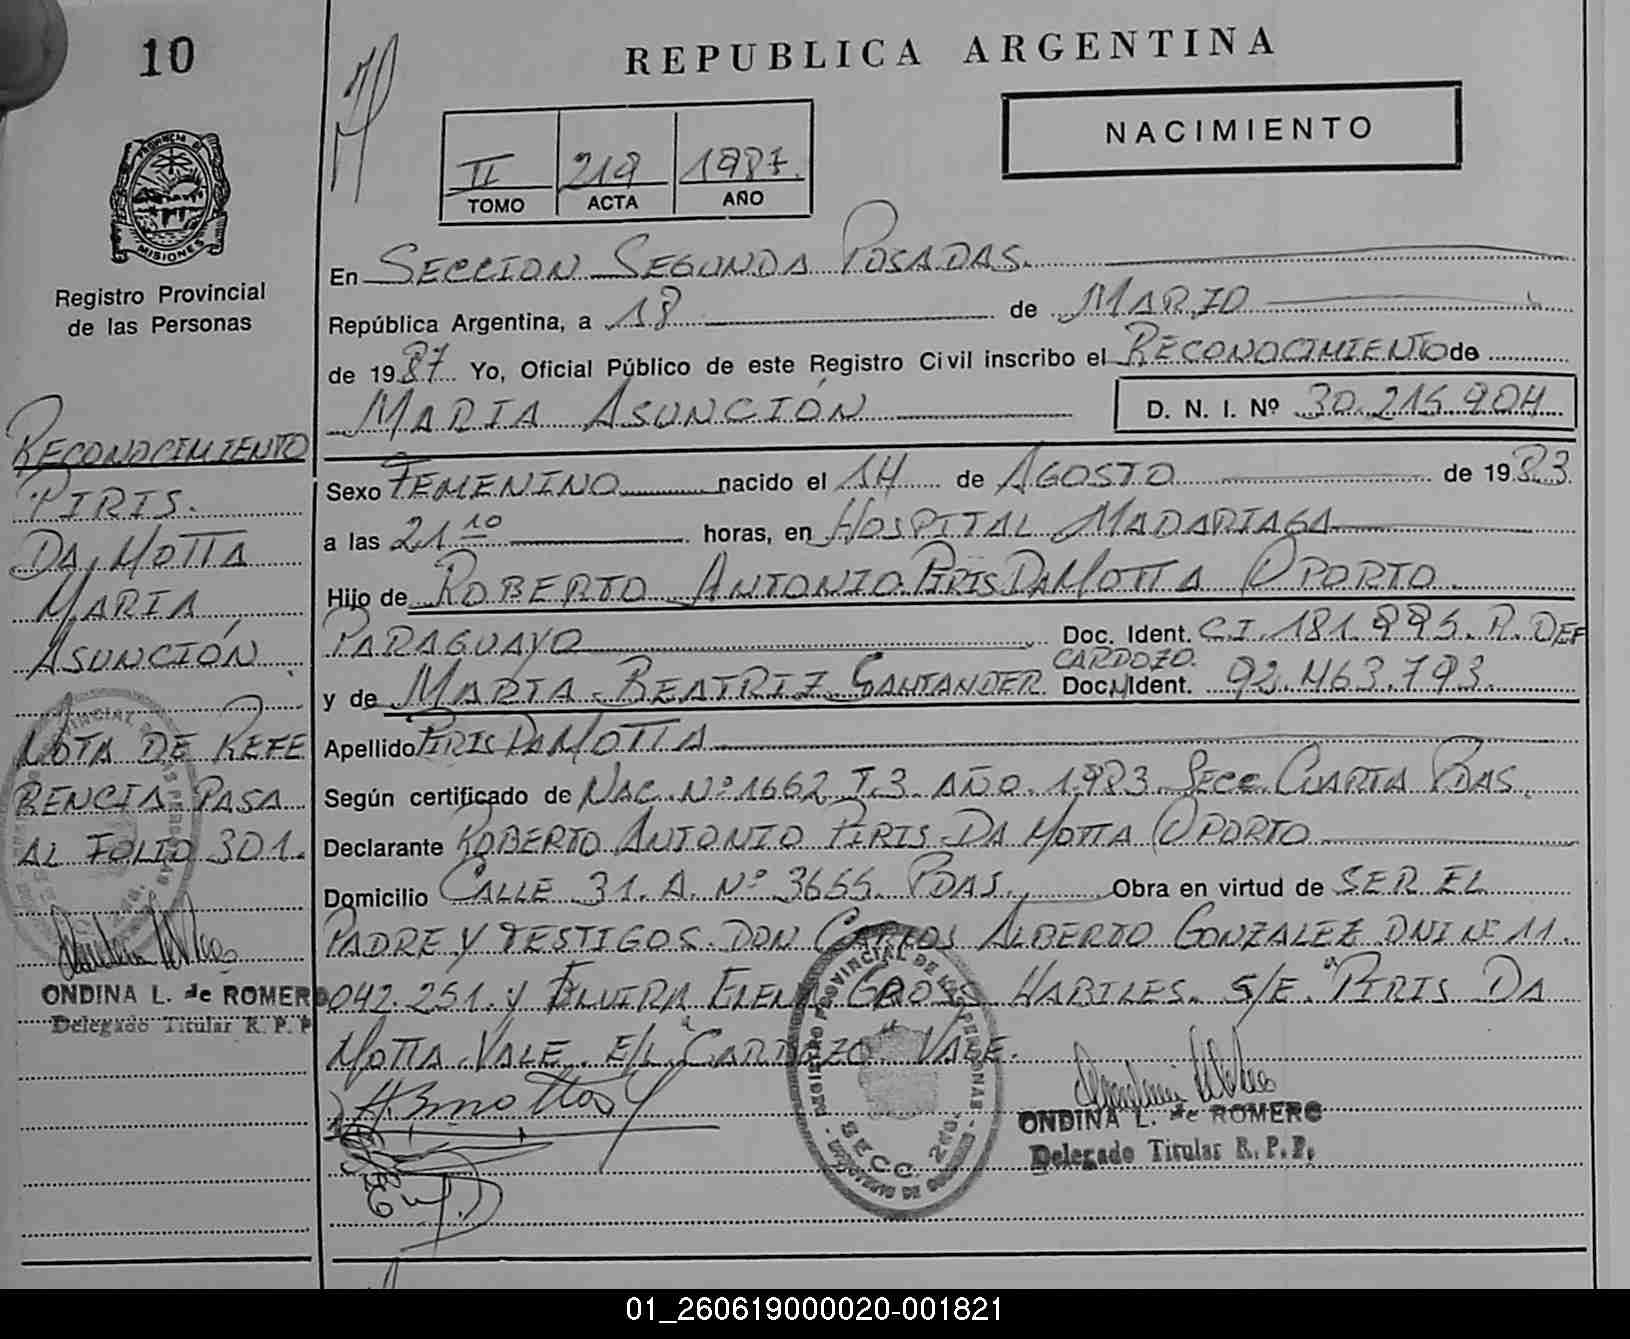 10
REPUBLICA ARGENTINA
NACIMIENTO
II 219 1987.
TOMO ACTA AÑO
PROVINCIA DE MISIONES
Registro Provincial
de las Personas
RECONOCIMIENTO
PIRIS.
DA MOTTA
MARIA
ASUNCIÓN.
NOTA DE REFE
RENCIA PASA
AL FOLIO 301.
ONDINA L. de ROMERO
Delegado Titular R. P. P.
En SECCION SEGUNDA POSADAS.
República Argentina, a 18 de MARZO
de 1987 Yo, Oficial Público de este Registro Civil inscribo el RECONOCIMIENTO de
MARIA ASUNCIÓN D. N. I. Nº 30.215.904
Sexo FEMENINO nacido el 14 de AGOSTO de 1983
a las 21 10 horas, en HOSPITAL MADARIAGA
Hijo de ROBERTO ANTONIO PIRIS DA MOTTA OPORTO
PARAGUAYO Doc. Ident. C.I. 181.995. P. DEF
CARDOZO.
y de MARIA BEATRIZ SANTANDER Doc. Ident. 92.463.793
Apellido PIRIS DA MOTTA
Según certificado de NAC. Nº 1662 T.3 AÑO 1983 SECC. CUARTA PDAS.
Declarante ROBERTO ANTONIO PIRIS DA MOTTA OPORTO
Domicilio CALLE 31. A. Nº 3655 PDAS. Obra en virtud de SER EL
PADRE Y TESTIGOS DON CARLOS ALBERTO GONZALEZ DNI Nº 11.
042.251. Y ELVIRA ELENA GROSS HABILES. S/E. "PIRIS DA
MOTTA VALE. E/L "CARDOZO VALE.
REGISTRO PROVINCIAL DE LAS PERSONAS
SECC. 2da.
MINISTERIO DE GOBIERNO
ONDINA L. de ROMERO
Delegado Titular R. P. P.
01_260619000020-001821